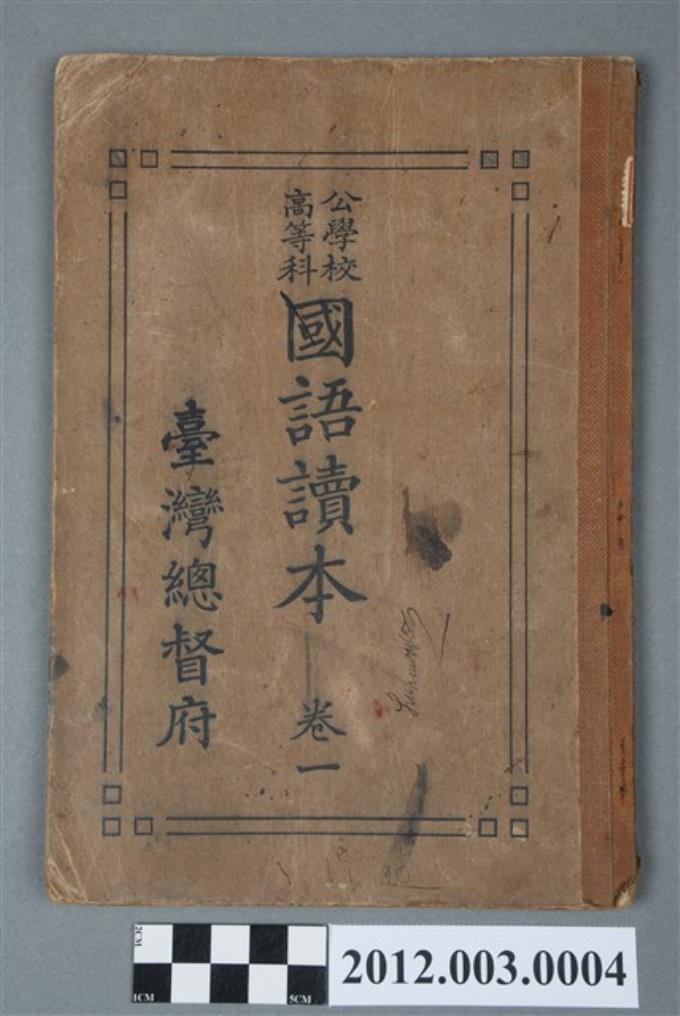 公學校
高等科
國語讀本 卷一
臺灣總督府
2CM
1CM
5CM
2012.003.0004